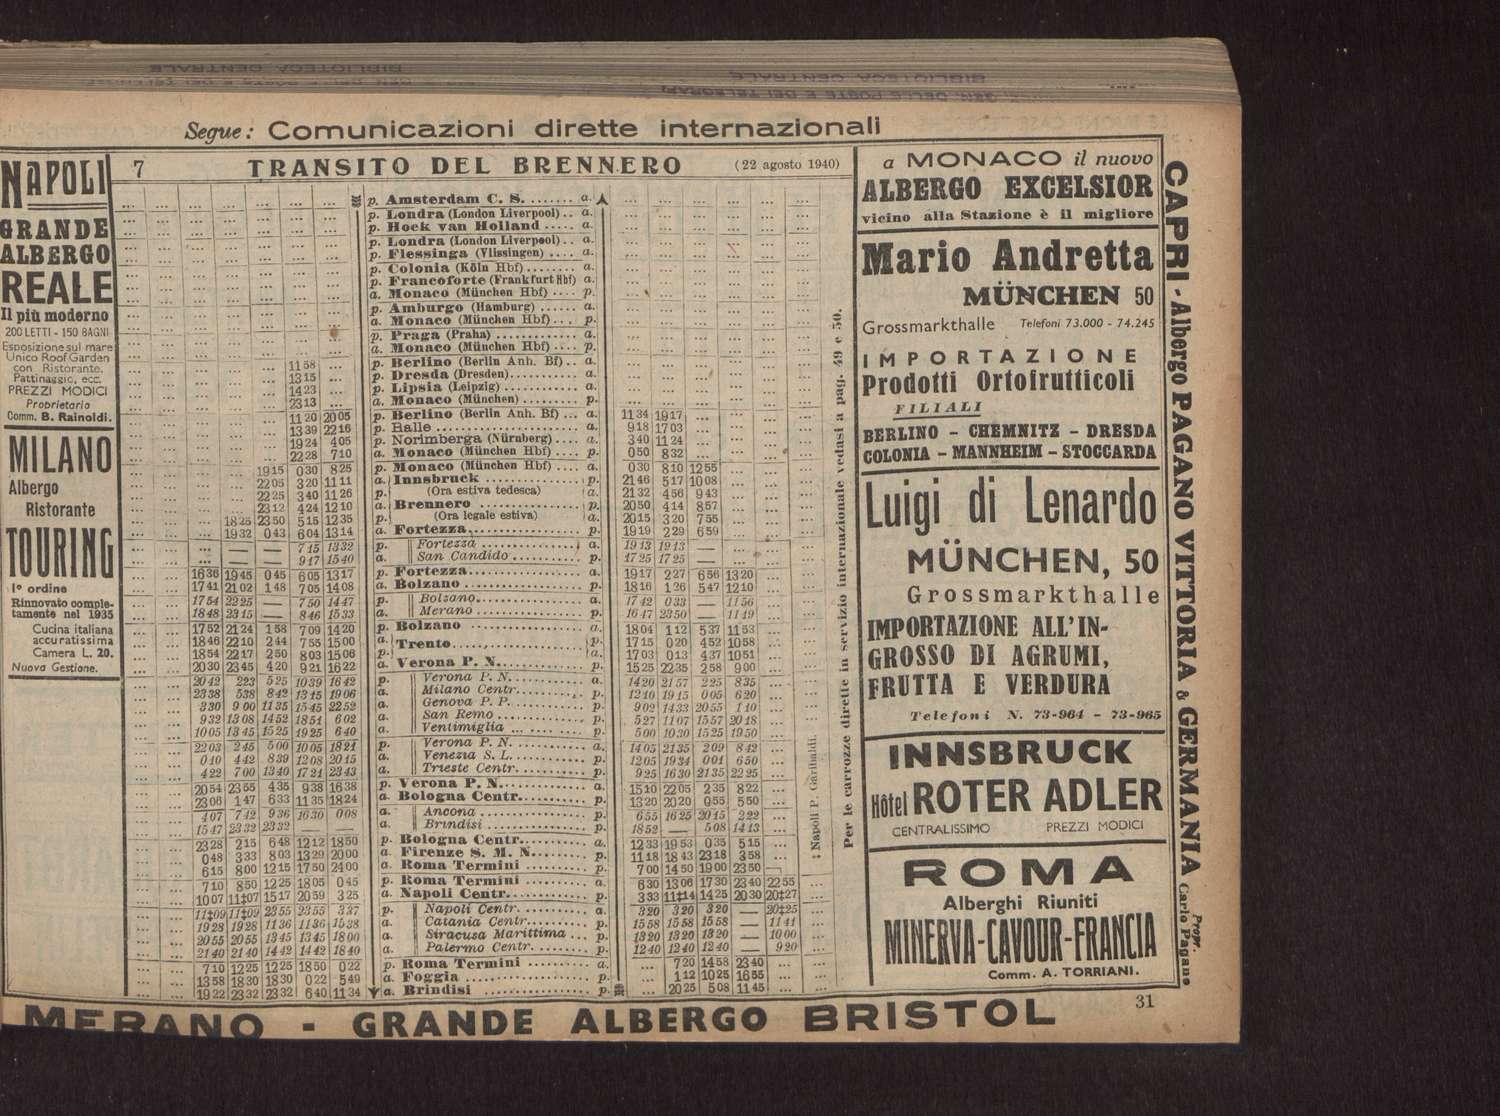 BIBLIOTECA CENTRALE
BIBLIOTECA CENTRALE
Segue: Comunicazioni dirette internazionali
NAPOLI
GRANDE
ALBERGO
REALE
Il più moderno
200 LETTI - 150 BAGNI
Esposizione sul mare
Unico Roof Garden
con Ristorante.
Pattinaggio, ecc.
PREZZI MODICI
Proprietario
Comm. B. Rainoldi.
MILANO
Albergo
Ristorante
TOURING
1° ordine
Rinnovato comple-
tamente nel 1935
Cucina italiana
accuratissima
Camera L. 20.
Nuova Gestione.
7 TRANSITO DEL BRENNERO (22 agosto 1940)
... ... ... ... ... ... ... p. Amsterdam C. S. ....... a. ... ... ... ... ... ...
... ... ... ... ... ... ... p. Londra (London Liverpool) .. a. ... ... ... ... ... ...
... ... ... ... ... ... ... p. Hoek van Holland ..... a. ... ... ... ... ... ...
... ... ... ... ... ... ... p. Londra (London Liverpool) .. a. ... ... ... ... ... ...
... ... ... ... ... ... ... p. Flessinga (Vlissingen) .... a. ... ... ... ... ... ...
... ... ... ... ... ... ... p. Colonia (Köln Hbf) ........ a. ... ... ... ... ... ...
... ... ... ... ... ... ... p. Francoforte (Frankfurt Hbf) a. ... ... ... ... ... ...
... ... ... ... ... ... ... a. Monaco (München Hbf) .... p. ... ... ... ... ... ...
... ... ... ... ... ... ... p. Amburgo (Hamburg) ...... a. ... ... ... ... ... ...
... ... ... ... ... ... ... a. Monaco (München Hbf) ... p. ... ... ... ... ... ...
... ... ... ... ... ... ... p. Praga (Praha) ............ a. ... ... ... ... ... ...
... ... ... ... ... ... ... a. Monaco (München Hbf) .... p. ... ... ... ... ... ...
... ... ... ... ... 11 58 ... p. Berlino (Berlin Anh. Bf) .. a. ... ... ... ... ... ...
... ... ... ... ... 13 15 ... p. Dresda (Dresden) .......... a. ... ... ... ... ... ...
... ... ... ... ... 14 23 ... p. Lipsia (Leipzig) ........... a. ... ... ... ... ... ...
... ... ... ... ... 23 13 ... a. Monaco (München) ......... p. ... ... ... ... ... ...
... ... ... ... ... 11 20 20 05 p. Berlino (Berlin Anh. Bf) ... a. 11 34 19 17 ... ... ... ...
... ... ... ... ... 13 39 22 16 p. Halle .................. a. 9 18 17 03 ... ... ... ...
... ... ... ... ... 19 24 4 05 p. Norimberga (Nürnberg) .... a. 3 40 11 24 ... ... ... ...
... ... ... ... ... 22 28 7 10 a. Monaco (München Hbf) .... p. 0 50 8 32 ... ... ... ...
... ... ... ... 19 15 0 30 8 25 p. Monaco (München Hbf) ... a. 0 30 8 10 12 55 ... ... ...
... ... ... ... 22 05 3 20 11 11 a. Innsbruck .............. p. 21 46 5 17 10 08 ... ... ...
... ... ... ... 22 25 3 40 11 26 p. (Ora estiva tedesca) a. 21 32 4 56 9 43 ... ... ...
... ... ... ... 23 12 4 24 12 10 a. Brennero ............... p. 20 50 4 14 8 57 ... ... ...
... ... ... 18 25 23 50 5 15 12 35 p. (Ora legale estiva) a. 20 15 3 20 7 55 ... ... ...
... ... ... 19 32 0 43 6 04 13 14 a. Fortezza ................ p. 19 19 2 29 6 59 ... ... ...
... ... ... ... — 7 15 13 32 p. Fortezza ............. a. 19 13 19 13 — ... ... ...
... ... ... ... — 9 17 15 40 a. San Candido ........... p. 17 25 17 25 — ... ... ...
... ... 16 36 19 45 0 45 6 05 13 17 p. Fortezza ............... a. 19 17 2 27 6 56 13 20 ... ...
... ... 17 41 21 02 1 48 7 05 14 08 a. Bolzano ................ p. 18 16 1 26 5 47 12 10 ... ...
... ... 17 54 22 25 — 7 50 14 47 p. Bolzano .............. a. 17 42 0 33 — 11 56 ... ...
... ... 18 48 23 15 — 8 46 15 33 a. Merano ............... p. 16 47 23 50 — 11 19 ... ...
... ... 17 52 21 24 1 58 7 09 14 20 p. Bolzano ................ a. 18 04 1 12 5 37 11 53 ... ...
... ... 18 46 22 10 2 44 7 55 15 00 a. Trento .................. p. 17 15 0 20 4 52 10 58 ... ...
... ... 18 54 22 17 2 50 8 03 15 06 p. a. 17 03 0 13 4 37 10 51 ... ...
... ... 20 30 23 45 4 20 9 21 16 22 a. Verona P. N. ............ p. 15 25 22 35 2 58 9 00 ... ...
... ... 20 42 2 23 5 25 10 39 16 42 p. Verona P. N. .......... a. 14 20 21 57 2 25 8 35 ... ...
... ... 23 38 5 38 8 42 13 15 19 06 a. Milano Centr. .......... p. 12 10 19 15 0 05 6 20 ... ...
... ... 3 30 9 00 11 35 15 45 22 52 a. Genova P. P. .......... p. 9 02 14 33 20 55 1 10 ... ...
... ... 9 32 13 08 14 52 18 51 6 02 a. San Remo ............. p. 5 27 11 07 15 57 20 18 ... ...
... ... 10 05 13 45 15 25 19 25 6 40 a. Ventimiglia ............ p. 5 00 10 30 15 25 19 50 ... ...
... ... 22 03 2 45 5 00 10 05 18 21 p. Verona P. N. .......... a. 14 05 21 35 2 09 8 42 ... ...
... ... 0 10 4 42 8 39 12 08 20 15 a. Venezia S. L. .......... p. 12 05 19 34 0 01 6 50 ... ...
... ... 4 22 7 00 13 40 17 21 23 43 a. Trieste Centr. .......... p. 9 25 16 30 21 35 22 25 ... ...
... ... 20 54 23 55 4 35 9 38 16 38 p. Verona P. N. ............ a. 15 10 22 05 2 35 8 22 ... ...
... ... 23 06 1 47 6 33 11 35 18 24 a. Bologna Centr. .......... p. 13 20 20 20 0 55 5 50 ... ...
... ... 4 07 7 42 9 36 16 30 0 08 a. Ancona ............... p. 6 55 16 25 20 15 2 22 ... ...
... ... 15 47 23 32 23 32 — — a. Brindisi .............. p. 18 52 — 5 08 14 13 ... ...
... ... 23 28 2 15 6 48 12 12 18 50 p. Bologna Centr. .......... a. 12 33 19 53 0 35 5 15 ... ...
... ... 0 48 3 33 8 03 13 29 20 00 a. Firenze S. M. N. ......... p. 11 18 18 43 23 18 3 58 ... ...
... ... 6 15 8 00 12 15 17 50 24 00 a. Roma Termini .......... p. 7 00 14 50 19 00 23 50 ... ...
... ... 7 10 8 50 12 25 18 05 0 45 p. Roma Termini .......... a. 6 30 13 06 17 30 23 40 22 55 ...
... ... 10 07 11‡07 15 17 20 59 3 25 a. Napoli Centr. ........... p. 3 33 11‡14 14 25 20 30 20‡27 ...
... ... 11‡09 11‡09 23 55 23 55 3 37 p. Napoli Centr. .......... a. 3 20 3 20 3 20 — 20‡25 ...
... ... 19 28 19 28 11 36 11 36 15 38 a. Catania Centr. ......... p. 15 58 15 58 15 58 — 11 41 ...
... ... 20 55 20 55 13 45 13 45 18 00 a. Siracusa Marittima ... p. 13 20 13 20 13 20 — 10 00 ...
... ... 21 40 21 40 14 42 14 42 18 40 a. Palermo Centr. ......... p. 12 40 12 40 12 40 — 9 20 ...
... ... 7 10 12 25 12 25 18 50 0 22 p. Roma Termini .......... a. ... 7 20 14 58 23 40 ... ...
... ... 13 58 18 30 18 30 0 22 5 49 a. Foggia ................. p. ... 1 12 10 25 16 55 ... ...
... ... 19 22 23 32 23 32 6 40 11 34 a. Brindisi ................ p. ... 20 25 5 08 11 45 ... ...
‡ Napoli P. Garibaldi.
Per le carrozze dirette in servizio internazionale vedasi a pag. 49 e 50.
a MONACO il nuovo
ALBERGO EXCELSIOR
vicino alla Stazione è il migliore
Mario Andretta
MÜNCHEN 50
Grossmarkthalle Telefoni 73.000 - 74.245
IMPORTAZIONE
Prodotti Ortofrutticoli
FILIALI
BERLINO - CHEMNITZ - DRESDA
COLONIA - MANNHEIM - STOCCARDA
Luigi di Lenardo
MÜNCHEN, 50
Grossmarkthalle
IMPORTAZIONE ALL'IN-
GROSSO DI AGRUMI,
FRUTTA E VERDURA
Telefoni N. 73-964 - 73-965
INNSBRUCK
Hôtel ROTER ADLER
CENTRALISSIMO PREZZI MODICI
ROMA
Alberghi Riuniti
MINERVA-CAVOUR-FRANCIA
Comm. A. TORRIANI.
CAPRI - Albergo PAGANO VITTORIA & GERMANIA Propr. Carlo Pagano
31
MERANO - GRANDE ALBERGO BRISTOL